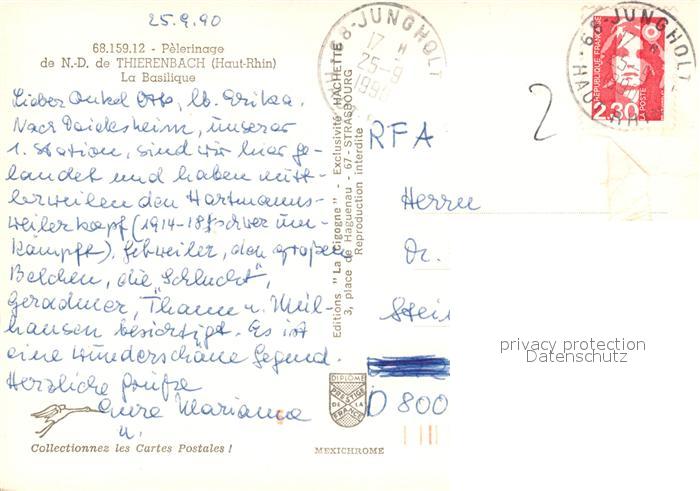 25.9.90
68.159.12 - Pèlerinage
de N.-D. de THIERENBACH (Haut-Rhin)
La Basilique
Lieber Onkel Otto, lb. Erika.
Nach Deidesheim, unserer
1. Station, sind wir hier ge-
landet und haben mitt-
lerweilen den Hartmanns-
weilerkopf (1914-18 schwer um-
kämpft), Gebweiler, den großen
Belchen, die "Schlucht",
Gerardmer, Thann u. Mül-
hausen besichtigt. Es ist
eine wunderschöne Gegend.
Herzliche Grüße
Eure Marianne
u.
Collectionnez les Cartes Postales !
Editions "La Cigogne" - Exclusivité HACHETTE
3, place de Haguenau - 67-STRASBOURG
Reproduction interdite
DIPLÔME
PRESTIGE
DE LA
FRANCE
MEXICHROME
68-JUNGHOLTZ
17 H
25-9
1990
68-JUNGHOLTZ
HAUT-RHIN
REPUBLIQUE FRANÇAISE
LA POSTE
2,30
2
RFA
Herrn
Dr.
Stei
D 800
privacy protection
Datenschutz